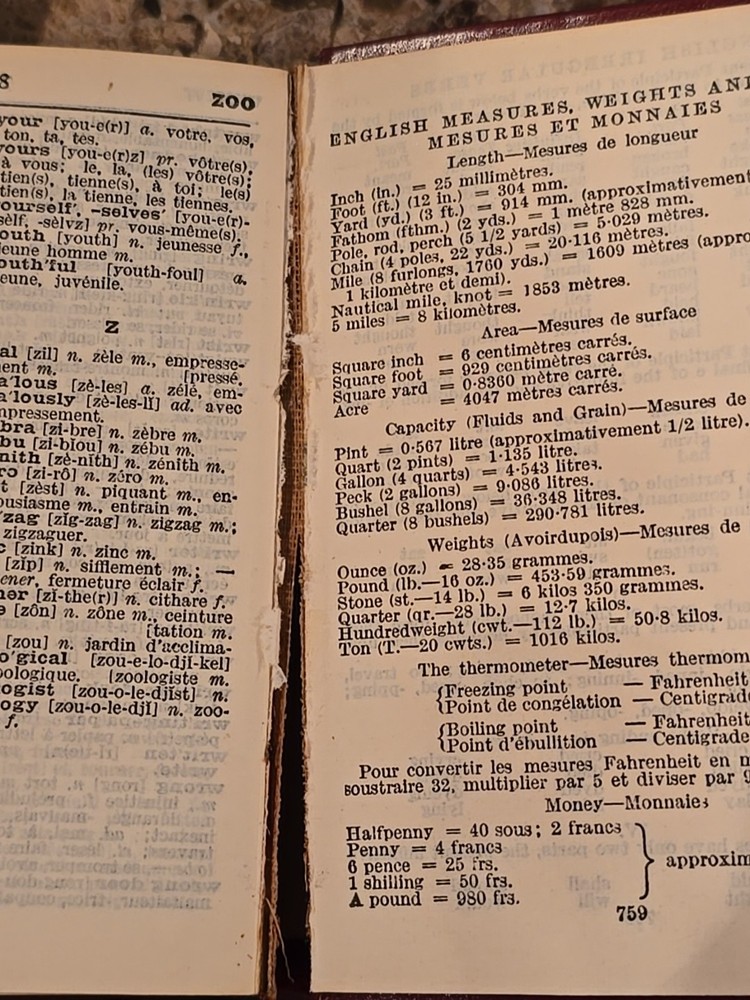 8
ZOO
your [you-e(r)] a. votre, vos,
ton, ta, tes.
yours [you-e(r)z] pr. vôtre(s),
à vous; le, la, (les) vôtre(s);
tien(s), tienne(s), à toi; le(s)
tien(s), la tienne, les tiennes.
ourself', -selves' [you-e(r)-
sèlf, -sèlvz] pr. vous-même(s).
outh [youth] n. jeunesse f.,
jeune homme m.
outh'ful [youth-foul] a.
jeune, juvénile.
Z
al [zil] n. zèle m., empresse-
ent m. [pressé.
a'lous [zè-les] a. zélé, em-
a'lously [zè-les-lĭ] ad. avec
mpressement.
bra [zi-bre] n. zèbre m.
bu [zi-biou] n. zébu m.
nith [zè-nith] n. zénith m.
ro [zi-rô] n. zéro m.
t [zèst] n. piquant m., en-
ousiasme m., entrain m.
'zag [zĭg-zag] n. zigzag m.;
zigzaguer.
c [zink] n. zinc m.
[zĭp] n. sifflement m.; —
ener, fermeture éclair f.
her [zĭ-the(r)] n. cithare f.
e [zôn] n. zône m., ceinture
[tation m.
[zou] n. jardin d'acclima-
o'gical [zou-e-lo-djĭ-kel]
oologique. [zoologiste m.
ogist [zou-o-le-djĭst] n.
ogy [zou-o-le-djĭ] n. zoo-
f.
ENGLISH MEASURES, WEIGHTS AND
MESURES ET MONNAIES
Length—Mesures de longueur
Inch (in.) = 25 millimètres.
Foot (ft.) (12 in.) = 304 mm.
Yard (yd.) (3 ft.) = 914 mm. (approximativement
Fathom (fthm.) (2 yds.) = 1 mètre 828 mm.
Pole, rod, perch (5 1/2 yards) = 5·029 mètres.
Chain (4 poles, 22 yds.) = 20·116 mètres.
Mile (8 furlongs, 1760 yds.) = 1609 mètres (appro
1 kilomètre et demi).
Nautical mile, knot = 1853 mètres.
5 miles = 8 kilomètres.
Area—Mesures de surface
Square inch = 6 centimètres carrés.
Square foot = 929 centimètres carrés.
Square yard = 0·8360 mètre carré.
Acre = 4047 mètres carrés.
Capacity (Fluids and Grain)—Mesures de
Pint = 0·567 litre (approximativement 1/2 litre).
Quart (2 pints) = 1·135 litre.
Gallon (4 quarts) = 4·543 litres.
Peck (2 gallons) = 9·086 litres.
Bushel (8 gallons) = 36·348 litres.
Quarter (8 bushels) = 290·781 litres.
Weights (Avoirdupois)—Mesures de
Ounce (oz.) = 28·35 grammes.
Pound (lb.—16 oz.) = 453·59 grammes.
Stone (st.—14 lb.) = 6 kilos 350 grammes.
Quarter (qr.—28 lb.) = 12·7 kilos.
Hundredweight (cwt.—112 lb.) = 50·8 kilos.
Ton (T.—20 cwts.) = 1016 kilos.
The thermometer—Mesures thermom
Freezing point — Fahrenheit
Point de congélation — Centigrade
Boiling point — Fahrenheit
Point d'ébullition — Centigrade
Pour convertir les mesures Fahrenheit en
soustraire 32, multiplier par 5 et diviser par 9
Money—Monnaies
Halfpenny = 40 sous; 2 francs
Penny = 4 francs
6 pence = 25 frs.
1 shilling = 50 frs.
A pound = 980 frs.
approxim
759